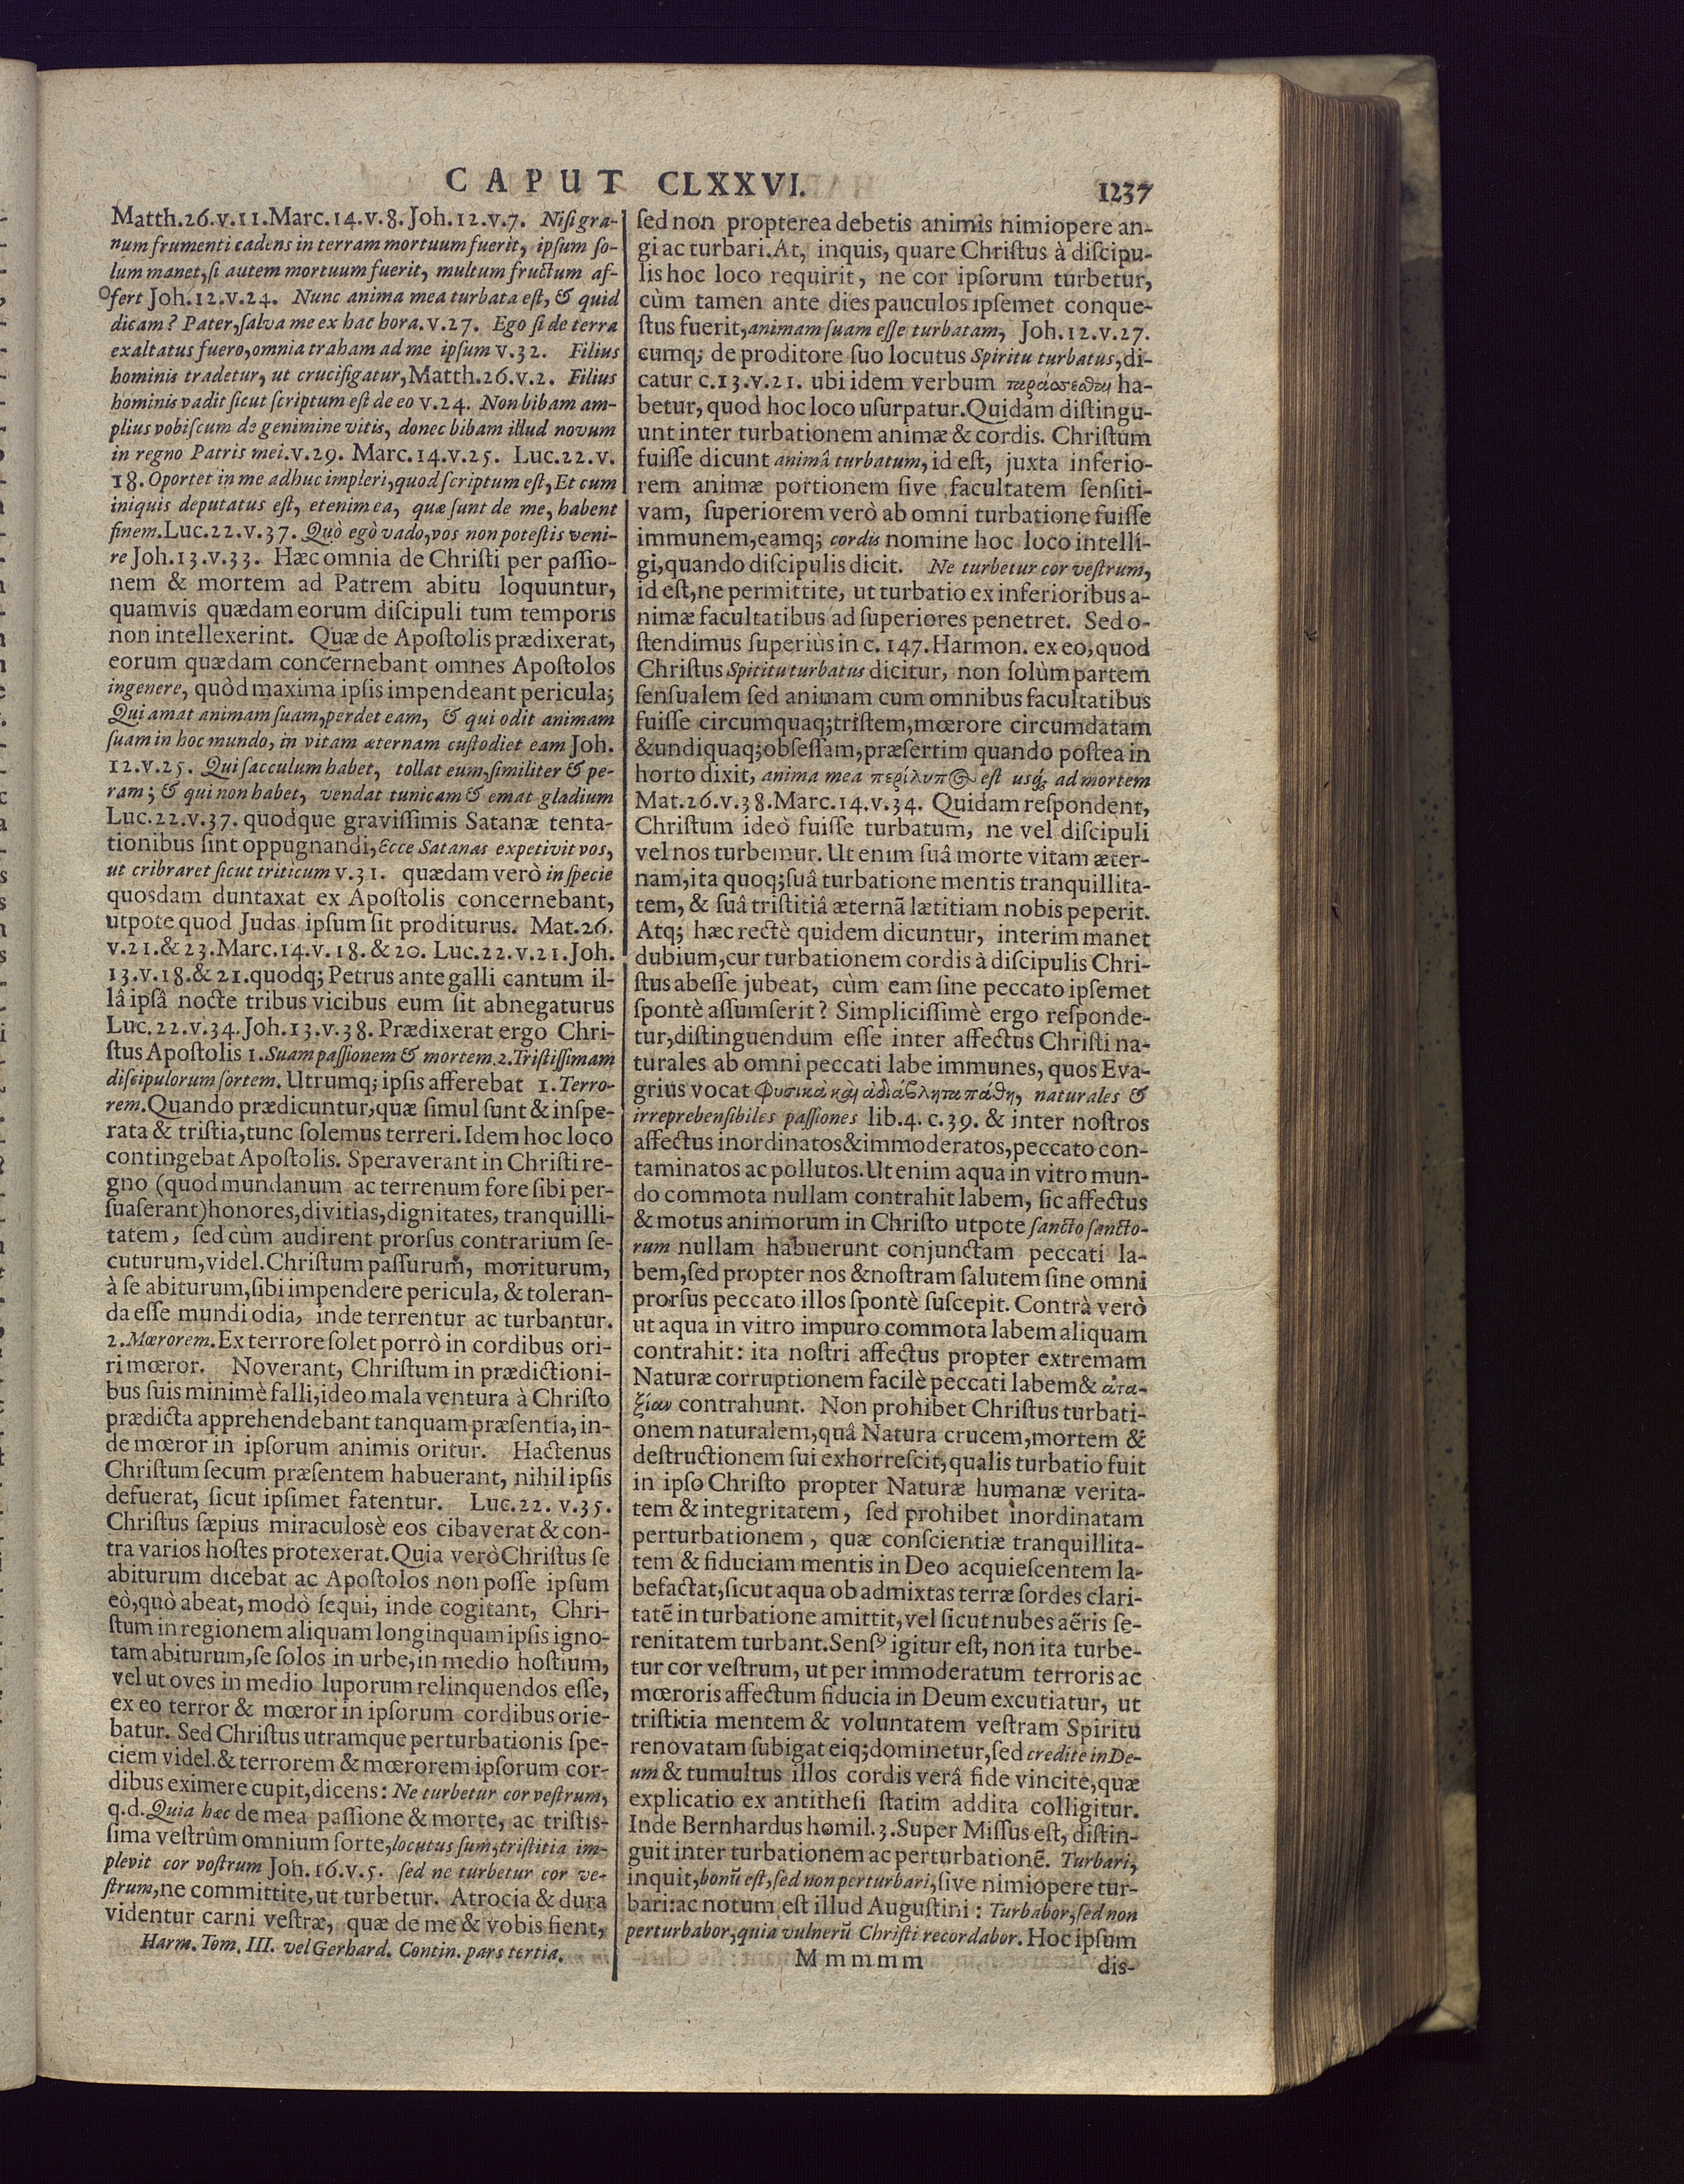 CAPUT CLXXVI.
1237
Matth.26.v.11.Marc.14.v.8. Joh.12.v.7. Niſi gra-
num frumenti cadens in terram mortuum fuerit, ipſum ſo-
lum manet, ſi autem mortuum fuerit, multum fructum af-
fert Joh.12.v.24. Nunc anima mea turbata eſt, & quid
dicam? Pater, ſalva me ex hac hora.v.27. Ego ſi de terra
exaltatus fuero, omnia traham ad me ipſum v.32. Filius
hominis tradetur, ut crucifigatur, Matth.26.v.2. Filius
hominis vadit ſicut ſcriptum eſt de eo v.24. Non bibam am-
plius vobiſcum de genimine vitis, donec bibam illud novum
in regno Patris mei.v.29. Marc.14.v.25. Luc.22.v.
18. Oportet in me adhuc impleri, quod ſcriptum eſt, Et cum
iniquis deputatus eſt, etenim ea, quæ ſunt de me, habent
finem.Luc.22.v.37. Quò egò vado, vos non poteſtis veni-
re Joh.13.v.33. Hæc omnia de Chriſti per paſſio-
nem & mortem ad Patrem abitu loquuntur,
quamvis quædam eorum diſcipuli tum temporis
non intellexerint. Quæ de Apoſtolis prædixerat,
eorum quædam concernebant omnes Apoſtolos
in genere, quòd maxima ipſis impendeant pericula;
Qui amat animam ſuam, perdet eam, & qui odit animam
ſuam in hoc mundo, in vitam æternam cuſtodiet eam Joh.
12.v.25. Qui ſacculum habet, tollat eum, ſimiliter & pe-
ram; & qui non habet, vendat tunicam & emat gladium
Luc.22.v.37. quodque graviſſimis Satanæ tenta-
tionibus ſint oppugnandi, Ecce Satanas expetivit vos,
ut cribraret ſicut triticum v.31. quædam verò in ſpecie
quosdam duntaxat ex Apoſtolis concernebant,
utpote quod Judas ipſum ſit proditurus. Mat.26.
v.21.& 23.Marc.14.v.18.& 20. Luc.22.v.21.Joh.
13.v.18.& 21.quodq; Petrus ante galli cantum il-
lâ ipſâ nocte tribus vicibus eum ſit abnegaturus
Luc.22.v.34.Joh.13.v.38. Prædixerat ergo Chri-
ſtus Apoſtolis 1. Suam paſſionem & mortem. 2. Triſtiſſimam
diſcipulorum ſortem. Utrumq; ipſis afferebat 1. Terro-
rem. Quando prædicuntur, quæ ſimul ſunt & inſpe-
rata & triſtia, tunc ſolemus terreri. Idem hoc loco
contingebat Apoſtolis. Speraverant in Chriſti re-
gno (quod mundanum ac terrenum fore ſibi per-
ſuaſerant) honores, divitias, dignitates, tranquilli-
tatem, ſed cùm audirent prorſus contrarium ſe-
cuturum, videl. Chriſtum paſſurum, moriturum,
à ſe abiturum, ſibi impendere pericula, & toleran-
da eſſe mundi odia, inde terrentur ac turbantur.
2. Mœrorem. Ex terrore ſolet porrò in cordibus ori-
ri mœror. Noverant, Chriſtum in prædictioni-
bus ſuis minimè falli, ideo mala ventura à Chriſto
prædicta apprehendebant tanquam præſentia, in-
de mœror in ipſorum animis oritur. Hactenus
Chriſtum ſecum præſentem habuerant, nihil ipſis
defuerat, ſicut ipſimet fatentur. Luc.22. v.35.
Chriſtus ſæpius miraculosè eos cibaverat & con-
tra varios hoſtes protexerat. Quia verò Chriſtus ſe
abiturum dicebat ac Apoſtolos non poſſe ipſum
eò, quò abeat, modò ſequi, inde cogitant, Chri-
ſtum in regionem aliquam longinquam ipſis igno-
tam abiturum, ſe ſolos in urbe, in medio hoſtium,
vel ut oves in medio luporum relinquendos eſſe,
ex eo terror & mœror in ipſorum cordibus orie-
batur. Sed Chriſtus utramque perturbationis ſpe-
ciem videl. & terrorem & mœrorem ipſorum cor-
dibus eximere cupit, dicens: Ne turbetur cor veſtrum,
q.d. Quia hæc de mea paſſione & morte, ac triſtis-
ſima veſtrûm omnium ſorte, locutus ſum, triſtitia im-
plevit cor voſtrum Joh.16.v.5. ſed ne turbetur cor ve-
ſtrum, ne committite, ut turbetur. Atrocia & dura
videntur carni veſtræ, quæ de me & vobis fient,
Harm. Tom. III. vel Gerhard. Contin. pars tertia.
ſed non propterea debetis animis nimiopere an-
gi ac turbari. At, inquis, quare Chriſtus à diſcipu-
lis hoc loco requirit, ne cor ipſorum turbetur,
cùm tamen ante dies pauculos ipſemet conque-
ſtus fuerit, animam ſuam eſſe turbatam, Joh.12.v.27.
cumq; de proditore ſuo locutus Spiritu turbatus, di-
catur c.13.v.21. ubi idem verbum ταράσσεσθαι ha-
betur, quod hoc loco uſurpatur. Quidam diſtingu-
unt inter turbationem animæ & cordis. Chriſtum
fuiſſe dicunt animâ turbatum, id eſt, juxta inferio-
rem animæ portionem ſive facultatem ſenſiti-
vam, ſuperiorem verò ab omni turbatione fuiſſe
immunem, eamq; cordis nomine hoc loco intelli-
gi, quando diſcipulis dicit. Ne turbetur cor veſtrum,
id eſt, ne permittite, ut turbatio ex inferioribus a-
nimæ facultatibus ad ſuperiores penetret. Sed o-
ſtendimus ſuperiùs in c. 147. Harmon. ex eo, quod
Chriſtus Spititu turbatus dicitur, non ſolùm partem
ſenſualem ſed animam cum omnibus facultatibus
fuiſſe circumquaq; triſtem, mœrore circumdatam
& undiquaq; obſeſſam, præſertim quando poſtea in
horto dixit, anima mea περίλυπος est usq; ad mortem
Mat.26.v.38.Marc.14.v.34. Quidam reſpondent,
Chriſtum ideò fuiſſe turbatum, ne vel diſcipuli
vel nos turbemur. Ut enim ſuâ morte vitam æter-
nam, ita quoq; ſuâ turbatione mentis tranquillita-
tem, & ſuâ triſtitiâ æternã lætitiam nobis peperit.
Atq; hæc rectè quidem dicuntur, interim manet
dubium, cur turbationem cordis à diſcipulis Chri-
ſtus abeſſe jubeat, cùm eam ſine peccato ipſemet
ſpontè aſſumſerit? Simpliciſſimè ergo reſponde-
tur, diſtinguendum eſſe inter affectus Chriſti na-
turales ab omni peccati labe immunes, quos Eva-
grius vocat Φυσικὰ καὶ ἀδιάβλητα πάθη, naturales &
irreprehenſibiles paſſiones lib.4. c.39. & inter noſtros
affectus inordinatos & immoderatos, peccato con-
taminatos ac pollutos. Ut enim aqua in vitro mun-
do commota nullam contrahit labem, ſic affectus
& motus animorum in Chriſto utpote ſancto ſancto-
rum nullam habuerunt conjunctam peccati la-
bem, ſed propter nos & noſtram ſalutem ſine omni
prorſus peccato illos ſpontè ſuſcepit. Contrà verò
ut aqua in vitro impuro commota labem aliquam
contrahit: ita noſtri affectus propter extremam
Naturæ corruptionem facilè peccati labem & ἀτα-
ξίαν contrahunt. Non prohibet Chriſtus turbati-
onem naturalem, quâ Natura crucem, mortem &
deſtructionem ſui exhorreſcit, qualis turbatio fuit
in ipſo Chriſto propter Naturæ humanæ verita-
tem & integritatem, ſed prohibet inordinatam
perturbationem, quæ conſcientiæ tranquillita-
tem & fiduciam mentis in Deo acquieſcentem la-
befactat, ſicut aqua ob admixtas terræ ſordes clari-
tatẽ in turbatione amittit, vel ſicut nubes aëris ſe-
renitatem turbant. Senſꝰ igitur eſt, non ita turbe-
tur cor veſtrum, ut per immoderatum terroris ac
mœroris affectum fiducia in Deum excutiatur, ut
triſtitia mentem & voluntatem veſtram Spiritu
renovatam ſubigat eiq; dominetur, ſed credite in De-
um & tumultus illos cordis verâ fide vincite, quæ
explicatio ex antitheſi ſtatim addita colligitur.
Inde Bernhardus homil.3. Super Miſſus eſt, diſtin-
guit inter turbationem ac perturbationẽ. Turbari,
inquit, bonũ eſt, ſed non perturbari, ſive nimiopere tur-
bari: ac notum eſt illud Auguſtini: Turbabor, ſed non
perturbabor, quia vulnerũ Chriſti recordabor. Hoc ipſum
Mmmmm
dis-